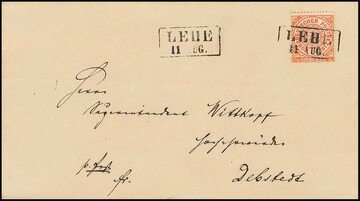 LEHE
11 AUG.
LEHE
11 AUG.
Herrn
Superintendent Wittkopf
Debstedt
fr.